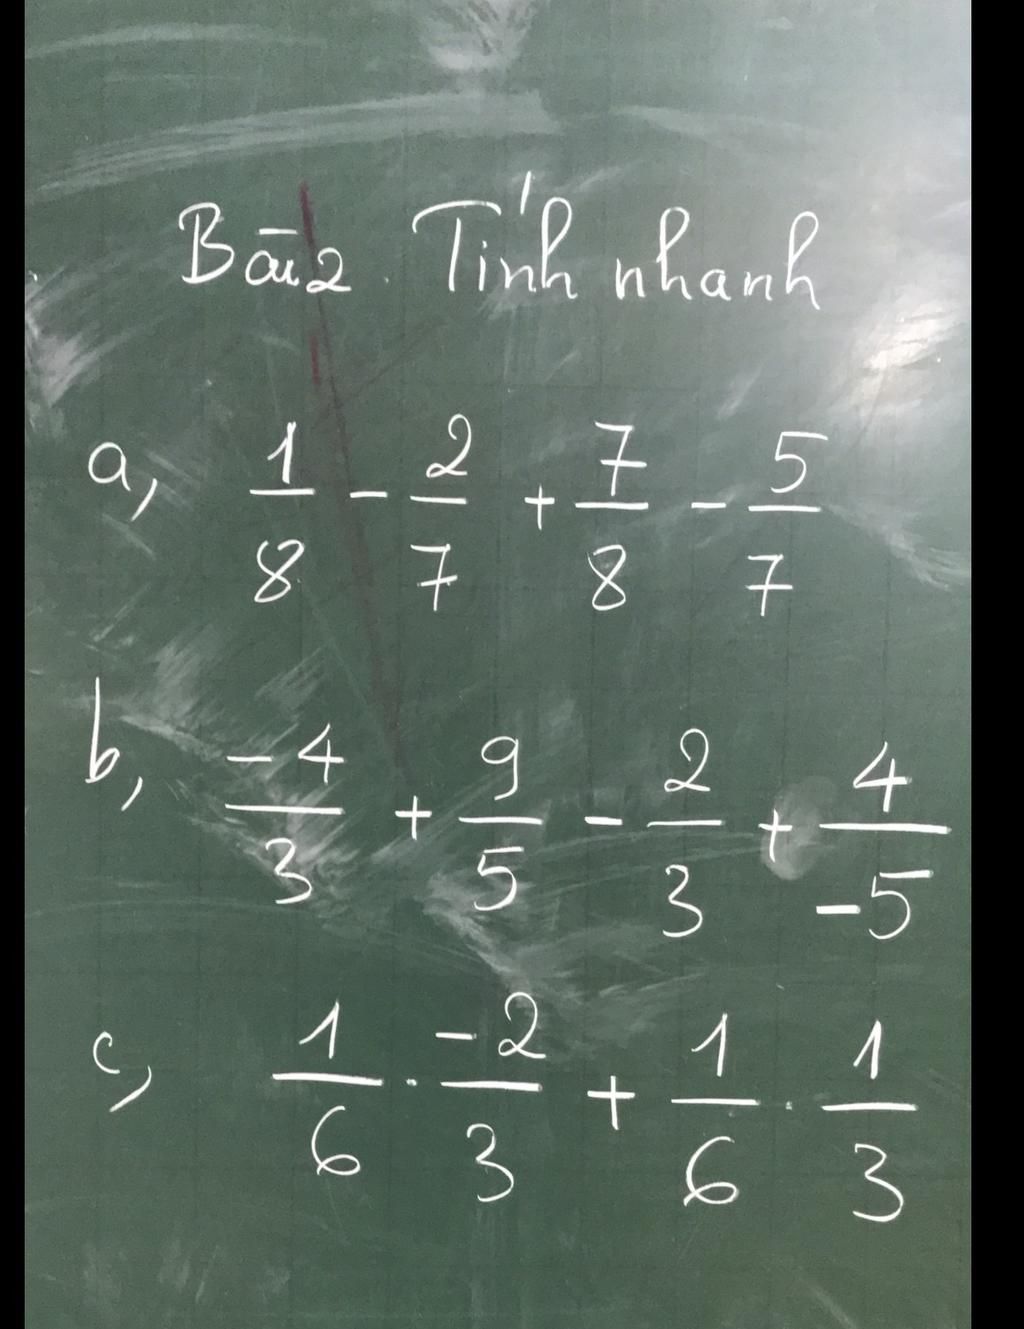 Bài 2. Tính nhanh
a, 1/8 - 2/7 + 7/8 - 5/7
b, -4/3 + 9/5 - 2/3 + 4/-5
c, 1/6 . -2/3 + 1/6 . 1/3